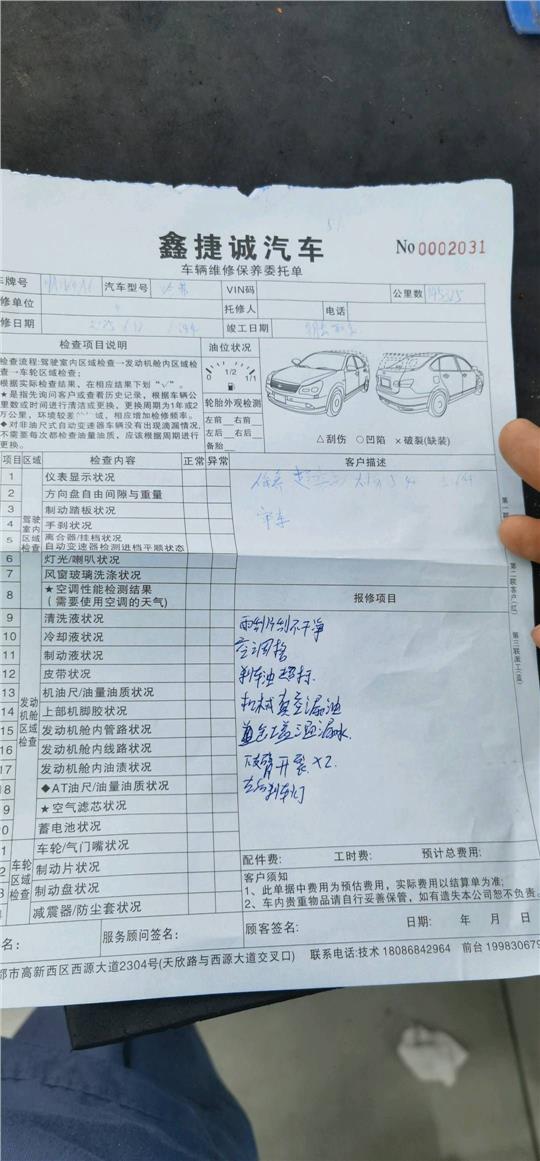 鑫捷诚汽车
No 0002031
车辆维修保养委托单
车牌号 汽车型号 VIN码 公里数
修单位 托修人 电话
修日期 竣工日期
检查项目说明
检查流程:驾驶室内区域检查→发动机舱内区域检查→车轮区域检查;
根据实际检查结果，在相应结果下划“√”。
★是指先询问客户或查看历史记录，根据车辆公里数或时间进行清洁或更换，更换周期为1年或2万公里，环境较差 区域，相应增加检修频率。
◆对非油尺式自动变速器车辆没有出现滴漏情况，不需要每次都检查油量油质，应该根据周期进行更换。
油位状况
0 1/2 1/1
轮胎外观检测
左前 右前
左后 右后
备胎
△刮伤 ○凹陷 ×破裂(缺装)
项目 区域 检查内容 正常 异常 客户描述
驾驶室内区域检查
1 仪表显示状况
2 方向盘自由间隙与重量
3 制动踏板状况
4 手刹状况
5 离合器/挂档状况
自动变速器检测进档平顺状态
6 灯光/喇叭状况
7 风窗玻璃洗涤状况
8 ★空调性能检测结果
(需要使用空调的天气)
保养
审车
报修项目
发动机舱区域检查
9 清洗液状况
10 冷却液状况
11 制动液状况
12 皮带状况
13 机油尺/油量油质状况
14 上部机脚胶状况
15 发动机舱内管路状况
16 发动机舱内线路状况
17 发动机舱内油渍状况
18 ◆AT油尺/油量油质状况
9 ★空气滤芯状况
0 蓄电池状况
雨刮片刮不干净
空调格
刹车油超标.
机械真空漏油
漏水.
下支臂开裂 ×2.
左后刹车灯
车轮区域检查
1 车轮/气门嘴状况
2 制动片状况
3 制动盘状况
减震器/防尘套状况
配件费: 工时费: 预计总费用:
客户须知
1、此单据中费用为预估费用，实际费用以结算单为准;
2、车内贵重物品请自行妥善保管，如有遗失本公司恕不负责。
签名: 服务顾问签名: 顾客签名: 日期: 年 月 日
都市高新西区西源大道2304号(天欣路与西源大道交叉口) 联系电话:技术 18086842964 前台 199830679
第二联客户(红)
第三联